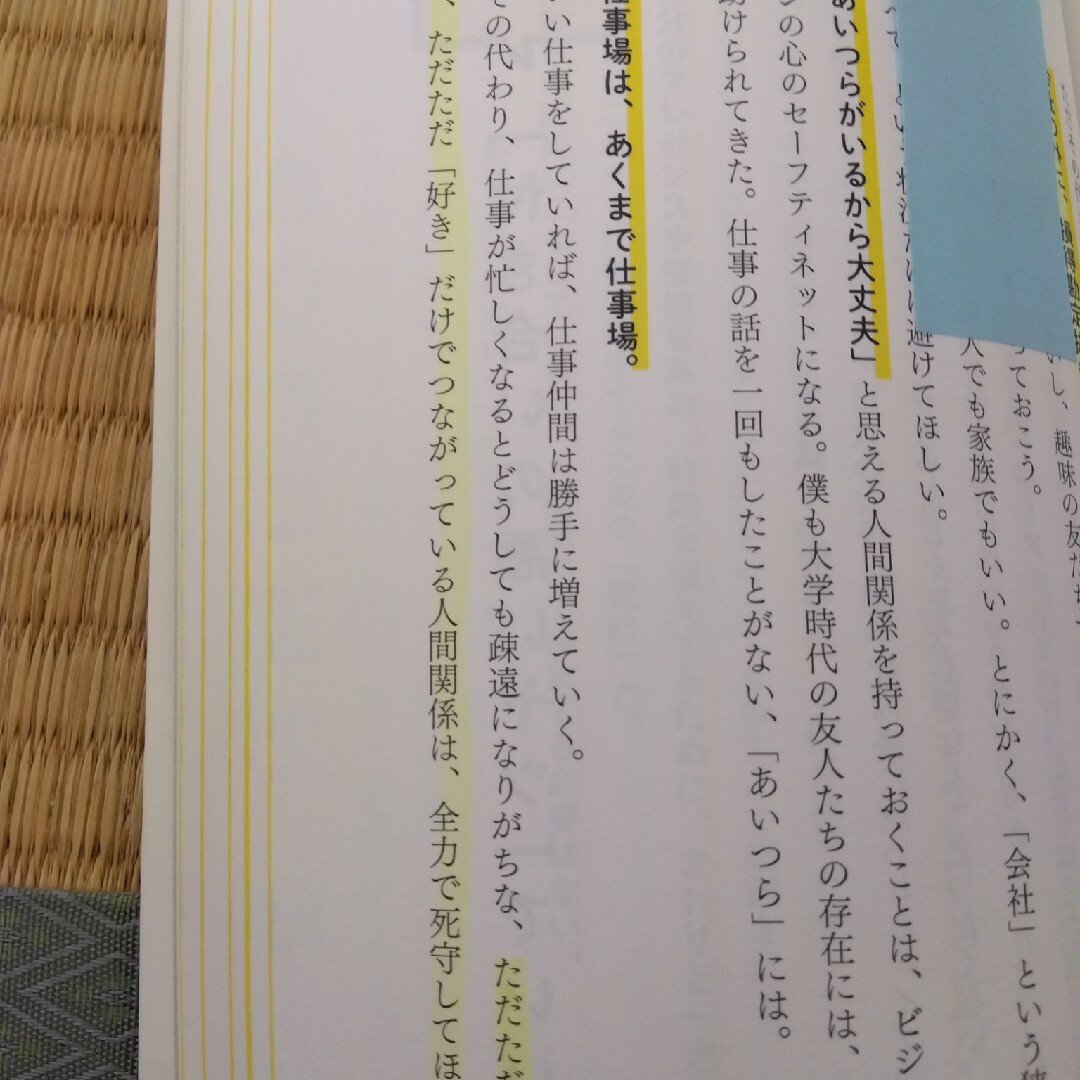 趣味の友だち
っておこう。
人でも家族でもいい。とにかく、「会社」という
避けてほしい。
あいつらがいるから大丈夫」と思える人間関係を持っておくことは、ビジ
の心のセーフティネットになる。僕も大学時代の友人たちの存在には、
助けられてきた。仕事の話を一回もしたことがない、「あいつら」には。
仕事場は、あくまで仕事場。
い仕事をしていれば、仕事仲間は勝手に増えていく。
その代わり、仕事が忙しくなるとどうしても疎遠になりがちな、ただただ
、ただただ「好き」だけでつながっている人間関係は、全力で死守してほ